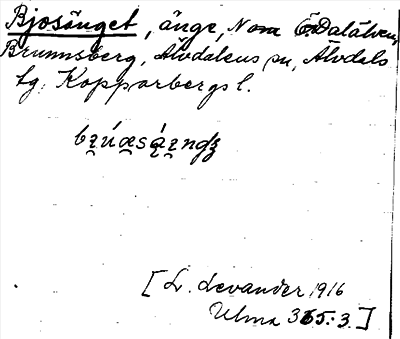 Bjosänget, änge, N om Ö. Dalälven,
Brunnsberg, Älvdalens sn, Älvdals
tg. Kopparbergs l.
[L. Levander 1916
Ulma 365:3.]